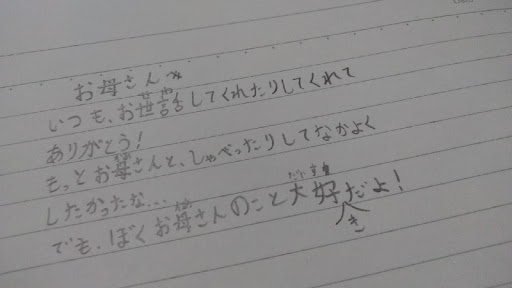 お母さんへ
いつも、お世話してくれたりしてくれて
ありがとう！
もっとお母さんと、しゃべったりしてなかよく
したかったな…
でも、ぼくお母さんのこと大好きだよ！